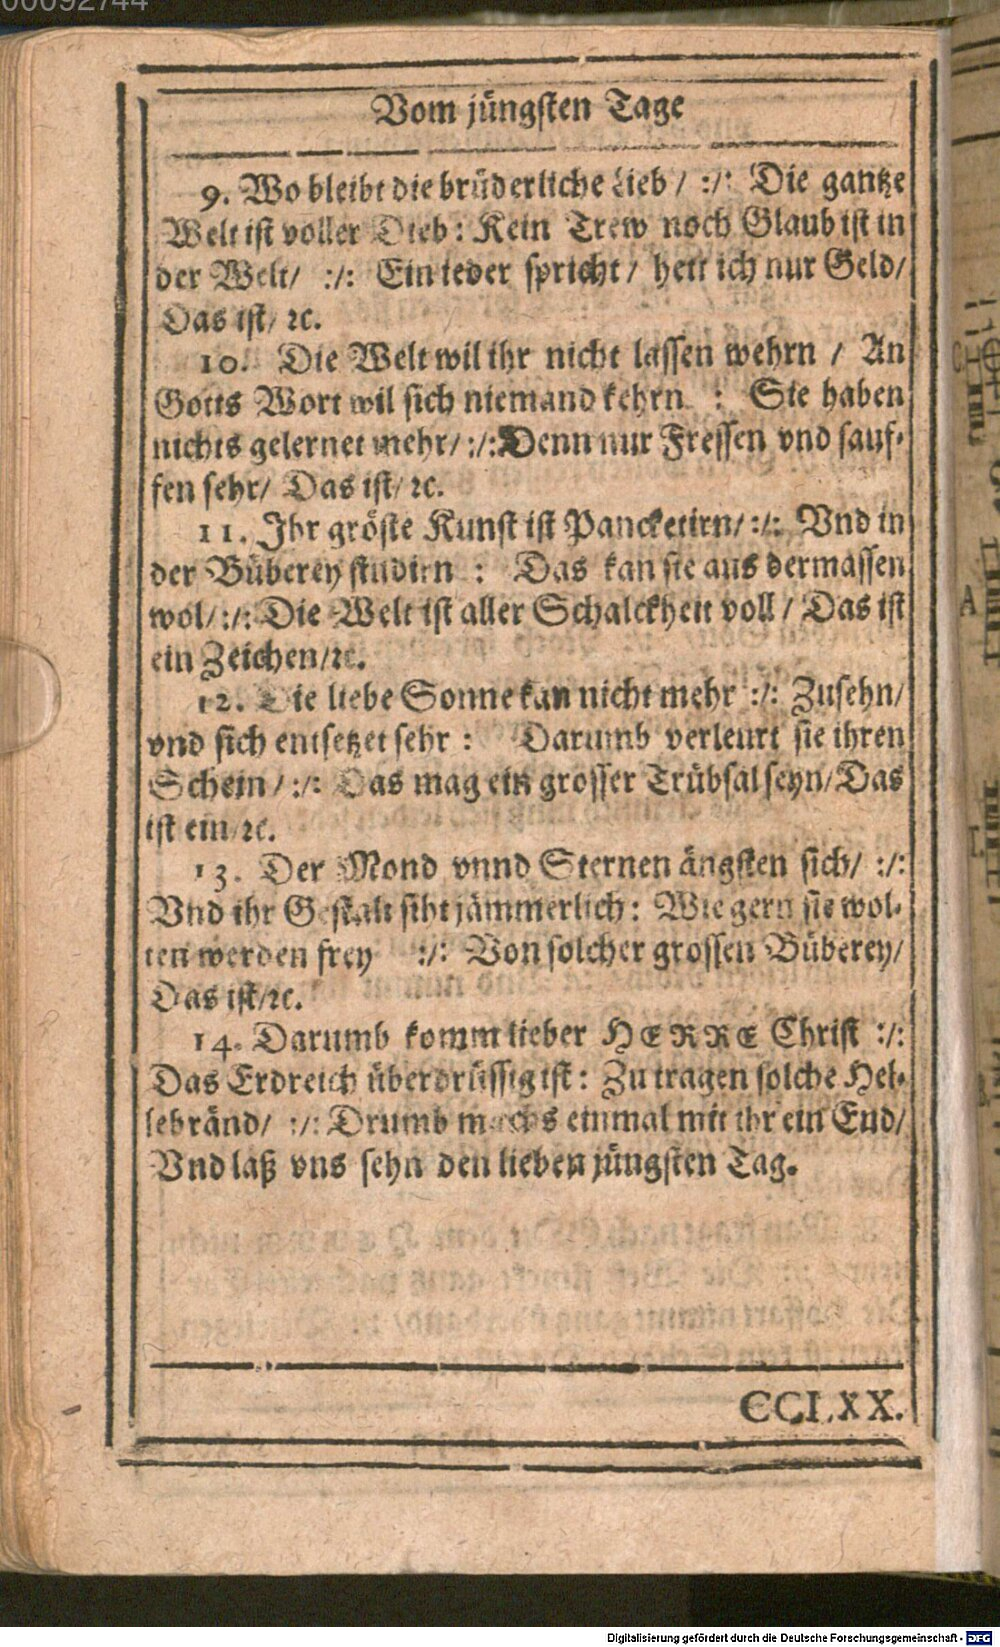 00092744
Vom jüngsten Tage
9. Wo bleibt die brüderliche Lieb / :/: Die gantze
Welt ist voller Dieb : Kein Trew noch Glaub ist in
der Welt/ :/: Ein ieder spricht / hett ich nur Geld/
Das ist/ ꝛc.
10. Die Welt wil ihr nicht lassen wehrn / An
Gotts Wort wil sich niemand kehrn : Sie haben
nichts gelernet mehr/ :/: Denn nur Fressen vnd sauf-
fen sehr/ Das ist/ ꝛc.
11. Ihr gröste Kunst ist Pancketirn/ :/: Vnd in
der Büberey studirn : Das kan sie aus dermassen
wol/ :/: Die Welt ist aller Schalckheit voll / Das ist
ein Zeichen/ꝛc.
12. Die liebe Sonne kan nicht mehr :/: Zusehn/
vnd sich entsetzet sehr : Darumb verleurt sie ihren
Schein / :/: Das mag ein grosser Trübsal seyn/ Das
ist ein/ꝛc.
13. Der Mond vnnd Sternen ängsten sich/ :/:
Vnd ihr Gestalt siht jämmerlich : Wie gern sie wol-
ten werden frey :/: Von solcher grossen Büberey/
Das ist/ꝛc.
14. Darumb komm lieber HERRE Christ :/:
Das Erdreich überdrüssig ist : Zu tragen solche Hel-
lebränd/ :/: Drumb machs einmal mit ihr ein End/
Vnd laß vns sehn den lieben jüngsten Tag.
CCLXX.
Digitalisierung gefördert durch die Deutsche Forschungsgemeinschaft - DFG